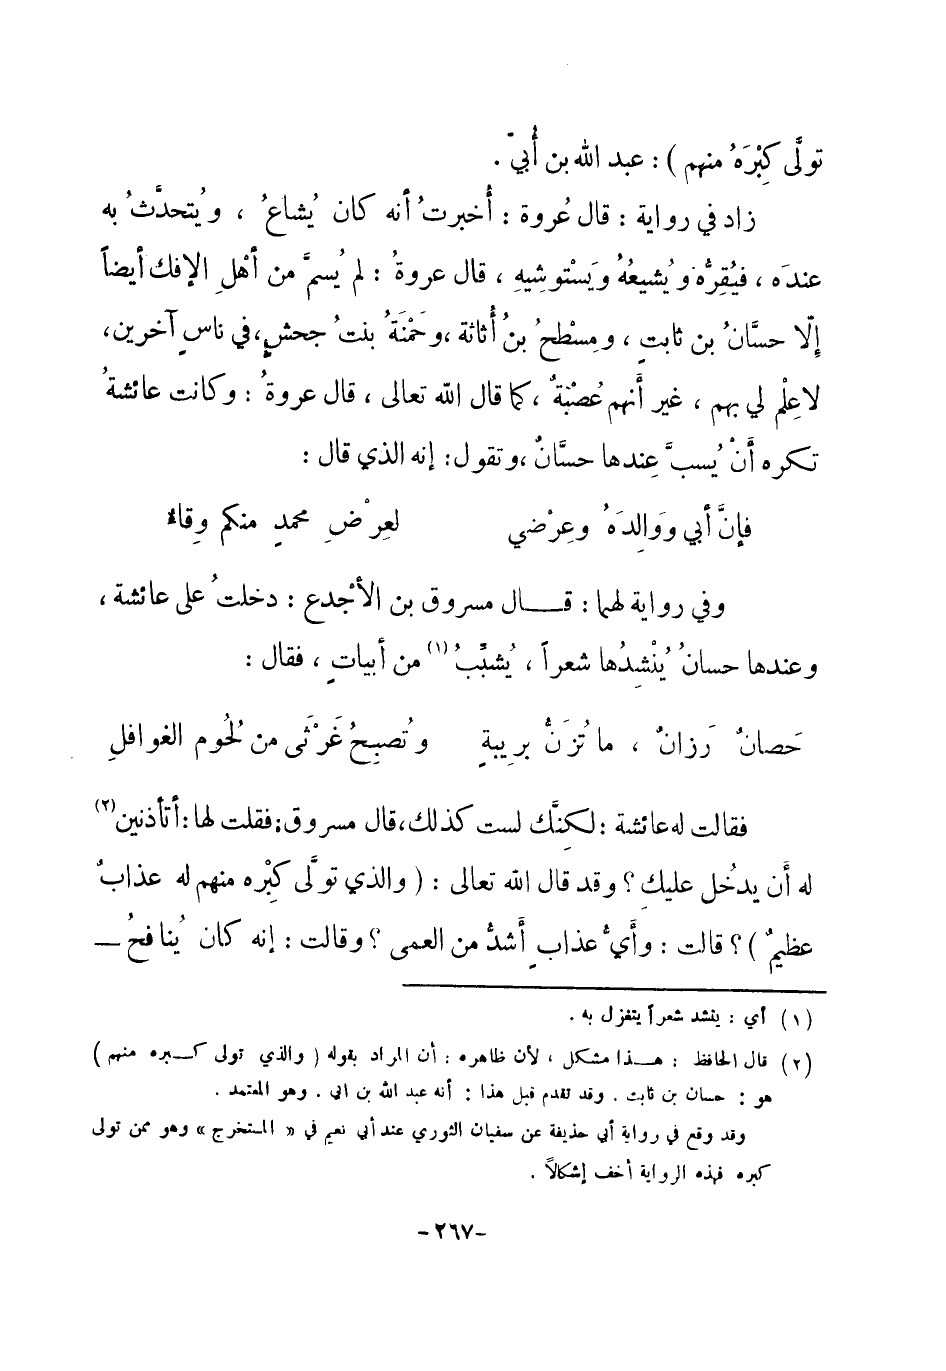 تولَّى كِبْرَهُ منهم ) : عبد الله بن أُبيّ .
زاد في رواية : قال عُروة : أُخبرتُ أنه كان يُشاعُ ، ويُتحدَّثُ به
عندَه ، فيُقِرُّه ويُشيعُهُ ويَسْتوشِيهِ ، قال عروةُ : لم يُسمَّ من أهْلِ الإفك أيضاً
إلّا حسَّانُ بن ثابتٍ ، ومِسْطحُ بنُ أُثاثة ،وحَمْنَةُ بنتُ جحشٍ،في ناسٍ آخرين،
لاعِلْم لي بهم ، غير أنهم عُصْبَةٌ ،كما قال الله تعالى ، قال عروةُ : وكانت عائشةُ
تكره أنْ يُسبَّ عِندها حسَّانٌ ،وتقول: إنه الذي قال :
فإنَّ أبي ووَالِدَهُ وعِرْضي لعِرْضِ محمدٍ منكم وِقاءُ
وفي رواية لهما : قـــال مسروق بن الأجْدع : دخلتُ على عائشة ،
وعندها حسانُ يُنْشِدُها شعراً ، يُشبِّبُ (١) من أبياتٍ ، فقال :
حَصانٌ رَزانٌ ، ما تُزَنُّ بريبةٍ وتُصبِحُ غَرْثَى من لُحُوم الغوافلِ
فقالت له عائشة :لكِنَّك لست كذلك،قال مسروق:فقلت لها:أتأذنين (٢)
له أن يدخُل عليكِ ؟ وقد قال الله تعالى : ( والذي تولَّى كِبْره منهم له عذابٌ
عظيمٌ ) ؟ قالت : وأيُّ عذابٍ أشدُّ من العمى ؟ وقالت : إنه كان يُنافحُ ــ
(١) أي : ينشد شعراً يتغزل به .
(٢) قال الحافظ : هـــذا مشكل ، لأن ظاهره : أن المراد بقوله ( والذي تولى كـــبره منهم )
هو : حسان بن ثابت . وقد تقدم قبل هذا : أنه عبد الله بن ابي . وهو المعتمد .
وقد وقع في رواية أبي حذيفة عن سفيان الثوري عند أبي نعيم في « المستخرج » وهو ممن تولى
كبره فهذه الرواية أخف إشكالاً .
-٢٦٧-